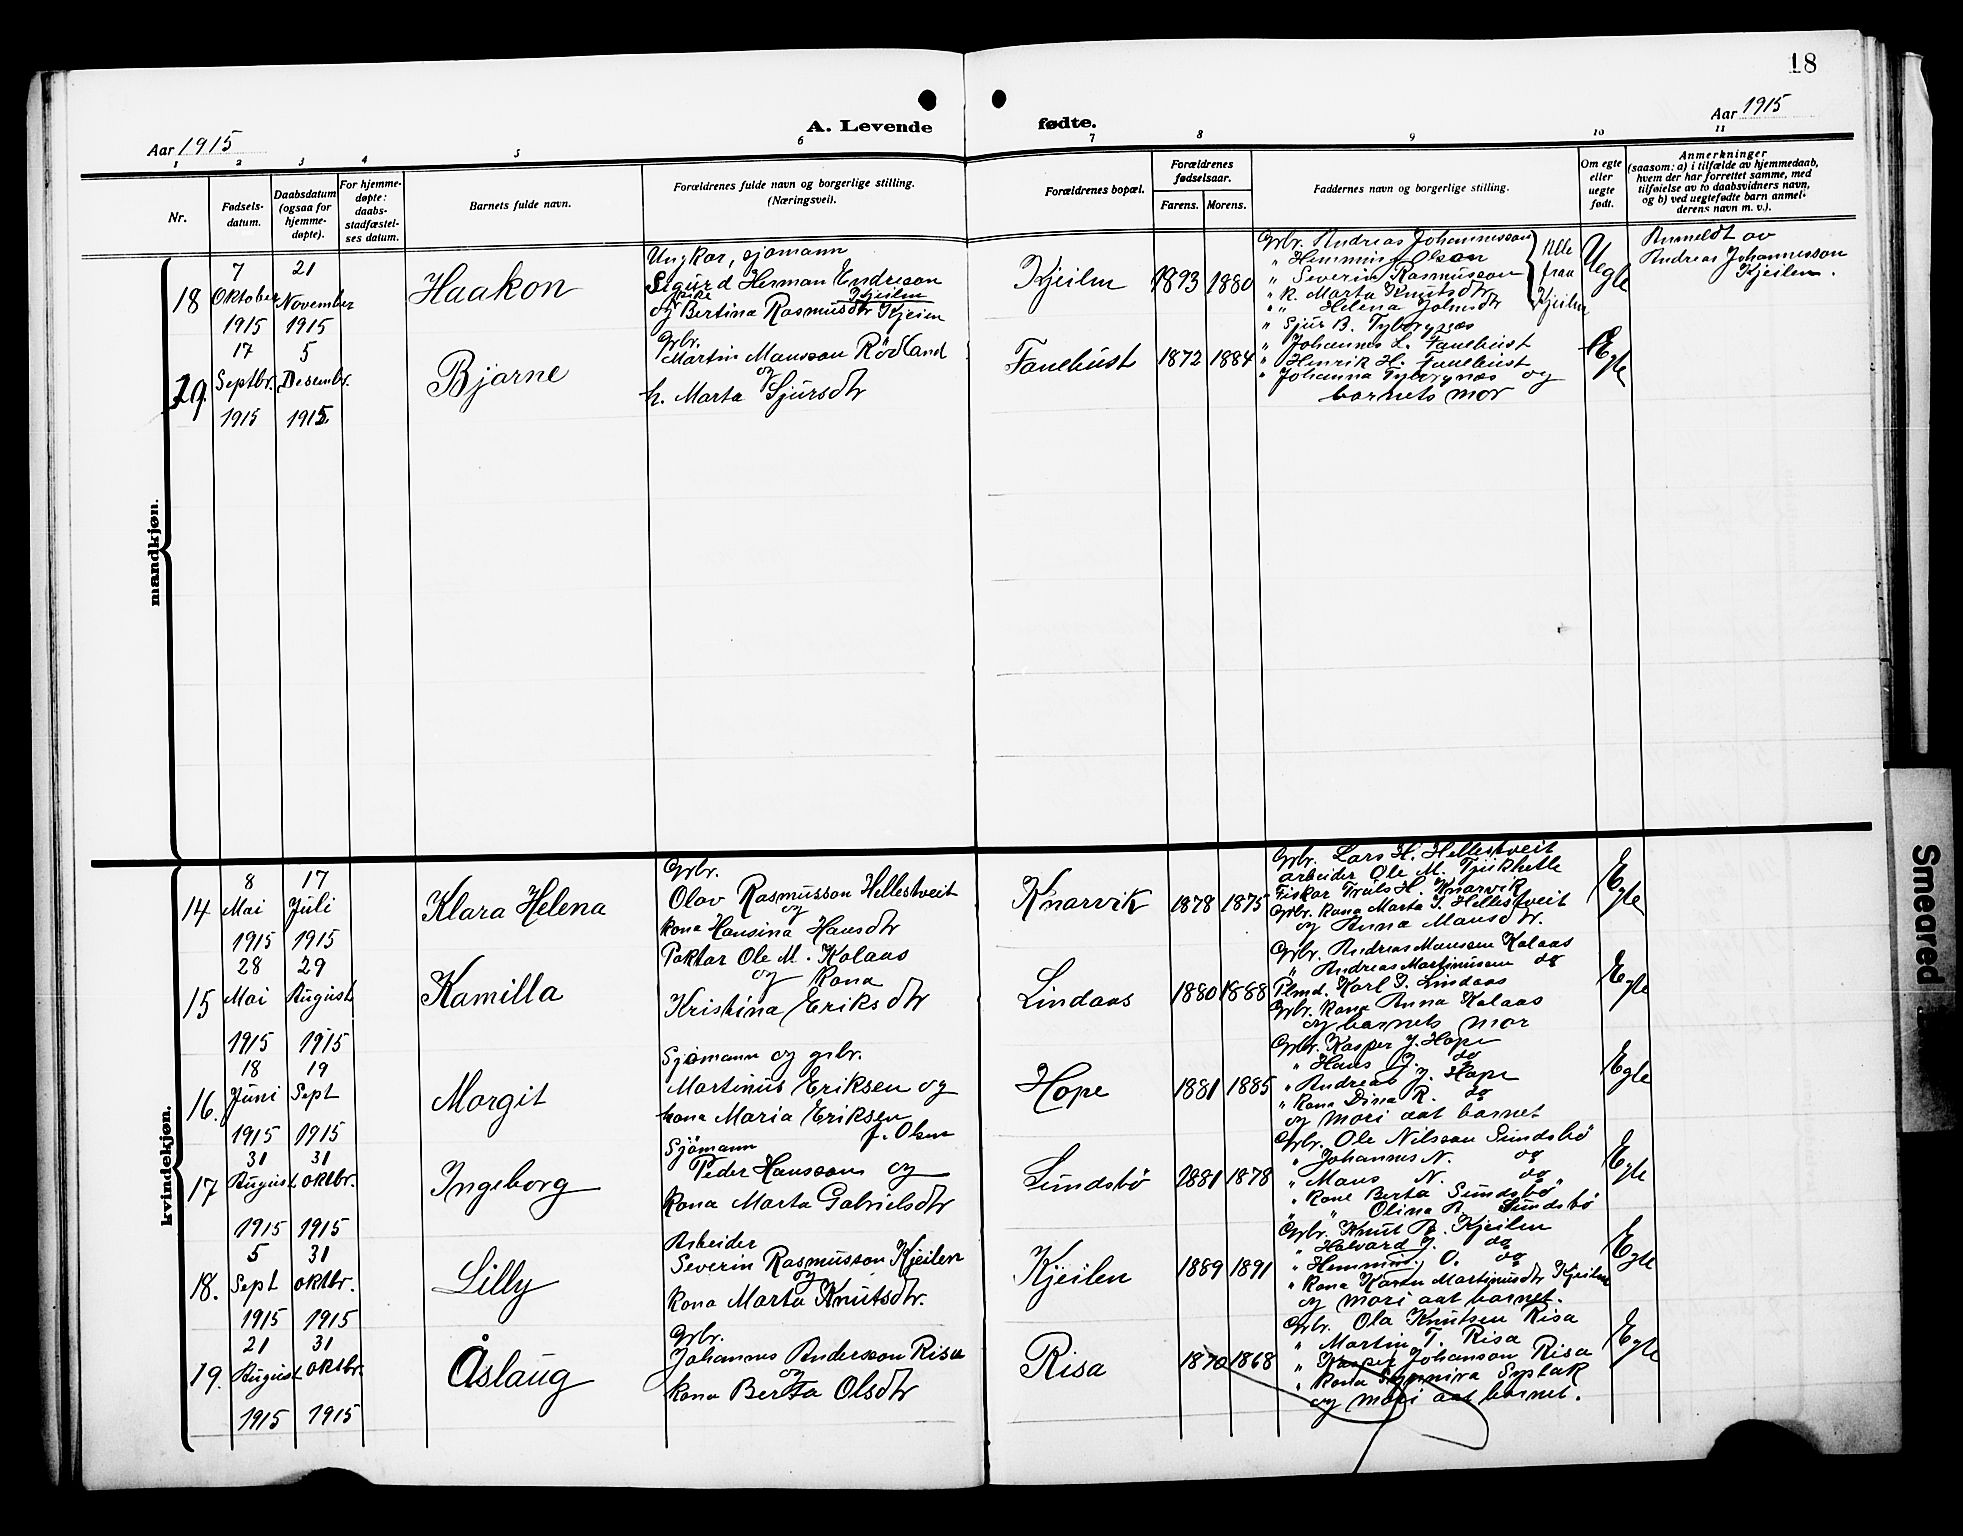 18
Aar 1915
A. Levende
fødte.
Aar 1915
1 2 3 4 5 6 7 8 9 10 11
Nr.
Fødsels-
datum.
Daabsdatum
(ogsaa for
hjemme-
døpte).
For hjemme-
døpte:
daabs-
stadfæstel-
ses datum.
Barnets fulde navn.
Forældrenes fulde navn og borgerlige stilling.
(Næringsvei).
Forældrenes bopæl.
Forældrenes
fødselsaar.
Farens. Morens.
Faddernes navn og borgerlige stilling.
Om egte
eller
uegte
født.
Anmerkninger
(saasom: a) i tilfælde av hjemmedaab,
hvem der har forrettet samme, med
tilføielse av to daabsvidners navn,
og b) ved uegtefødte barn anmel-
derens navn m. v.).
mandkjøn.
18
7
Oktober
1915
21
November
1915
Haakon
Ungkar, sjömann
Sigurd Herman Endreson
Kjeilen
og pike Bertina Rasmusdtr Kjeilen
Kjeilen
1893 1880
Grbr. Andreas Johannesson
" Hemming Olson
" Severin Rasmusson
" k. Marta Knutsdtr
" " Helena Johnsdtr
Alle
fraa
Kjeilen
Uegte
Anmeldt av
Andreas Johannesson
Kjeilen.
19.
17
Septbr.
1915
5
Desembr.
1915
Bjarne
Grbr.
Martin Mansson Rödland
og
h. Marta Sjursdtr
Fanebust
1872 1884
" Sjur B. Tyborgnæs
" Johannes L. Fanebust
" Henrik H. Fanebust
" Johanna Tyborgnæs og
barnets mor
Egte
kvindekjøn.
14
8
Mai
1915
17
Juli
1915
Klara Helena
Grbr.
Olav Rasmusson Hellestveit
og
kona Hansina Hansdtr
Knarvik
1878 1875
Grbr. Lars H. Hellestveit
arbeider Ole M. Tjukhelle
Fiskar Truls H. Knarvik
Grbr. kona Marta J. Hellestveit
og Anna Mansdtr.
Egte
15
28
Mai
1915
29
August
1915
Kamilla
Paktar Ole M. Kolaas
og kona
Kristina Eriksdtr
Lindaas
1880 1888
Grbr. Andreas Mansson Kolaas
" Andreas Martinusen do
Plmd. Karl J. Lindaas
Grbr. kona Anna Kolaas
og barnets mor
Egte
16.
18
Juni
1915
19
Sept
1915
Margit
Sjömann og grbr.
Martinus Eriksen og
kona Maria Eriksen
f. Olsen
Hope
1881 1885
Grbr. Kasper J. Hope
" Hans J. do
" Andreas J. Hope
" kona Dina R. do
og mori aat barnet
Egte
17
31
August
1915
31
oktbr.
1915
Ingeborg
Sjömann
Peder Hansson og
kona Marta Gabrielsdtr
Sundsbö
1881 1878
Grbr. Ole Nilsson Sundsbö
" Johannes N. do
" Mans N. do
" kone Berta Sundsbö
" " Olina A. Sundsbö
Egte
18.
5
Sept
1915
31
oktbr.
1915
Lilly
Arbeider
Severin Rasmusson Kjeilen
og
kona Marta Knutsdtr.
Kjeilen
1889 1891
Grbr. Knut R. Kjeilen
" Halvard J. do
" Hemming O. do
" kona Martinusdtr Kjeilen
og mori aat barnet.
Egte
19.
21
August
1915
31
oktbr.
1915
Åslaug
Grbr.
Johannes Andersson Risa
og
kona Berta Olsdtr
Risa
1870 1868
Grbr. Ola Knutsen Risa
" Martin T. Risa
" Kasper Johanson Risa
" kona Synniva Syslak
og mori aat barnet.
Egte
Smeared